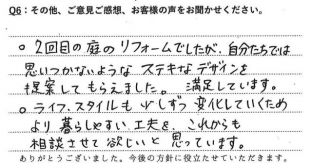 Q6：その他、ご意見ご感想、お客様の声をお聞かせください。
○ 2回目の庭のリフォームでしたが、自分たちでは
思いつかないような ステキなデザインを
提案してもらえました。 満足しています。
○ ライフ・スタイルも 少しずつ 変化していくため
より 暮らしやすい 工夫を、これからも
相談させて欲しいと 思っています。
ありがとうございました。今後の方針に役立たせていただきます。